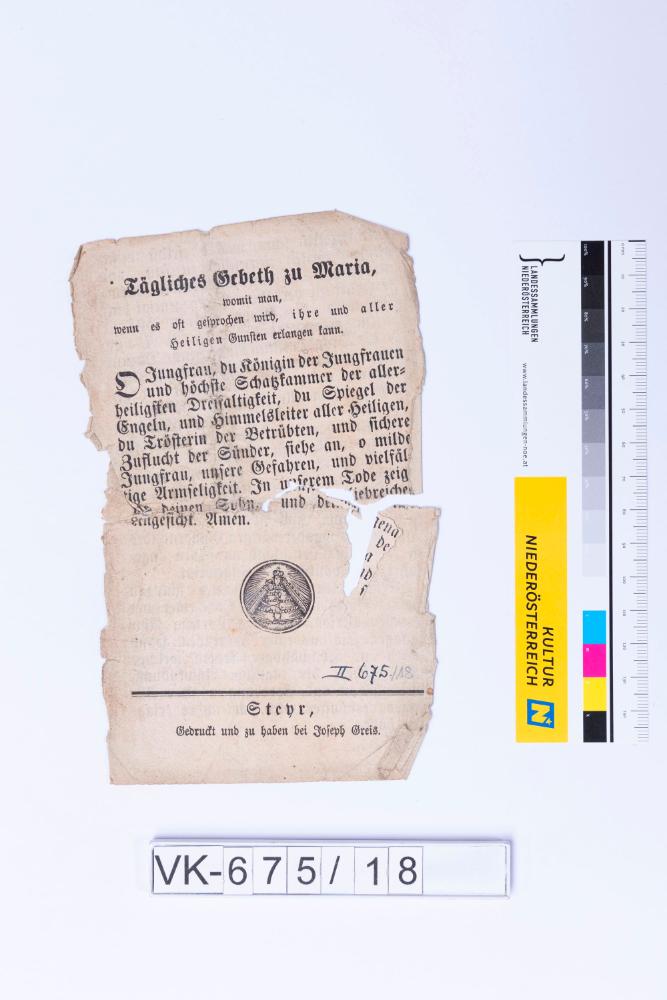 Tägliches Gebeth zu Maria,
womit man,
wenn es oft gesprochen wird, ihre und aller
Heiligen Gunsten erlangen kann.
O Jungfrau, du Königin der Jungfrauen
und höchste Schatzkammer der aller-
heiligsten Dreifaltigkeit, du Spiegel der
Engeln, und Himmelsleiter aller Heiligen,
du Trösterin der Betrübten, und sichere
Zuflucht der Sünder, siehe an, o milde
Jungfrau, unsere Gefahren, und vielfäl
tige Armseligkeit. In unserem Tode zeig
deinen Sohn, und liebreiches
Angesicht. Amen.
II 675/18
Steyr,
Gedruckt und zu haben bei Joseph Greis.
VK-675/18
LANDESSAMMLUNGEN
NIEDERÖSTERREICH
www.landessammlungen-noe.at
KULTUR
NIEDERÖSTERREICH